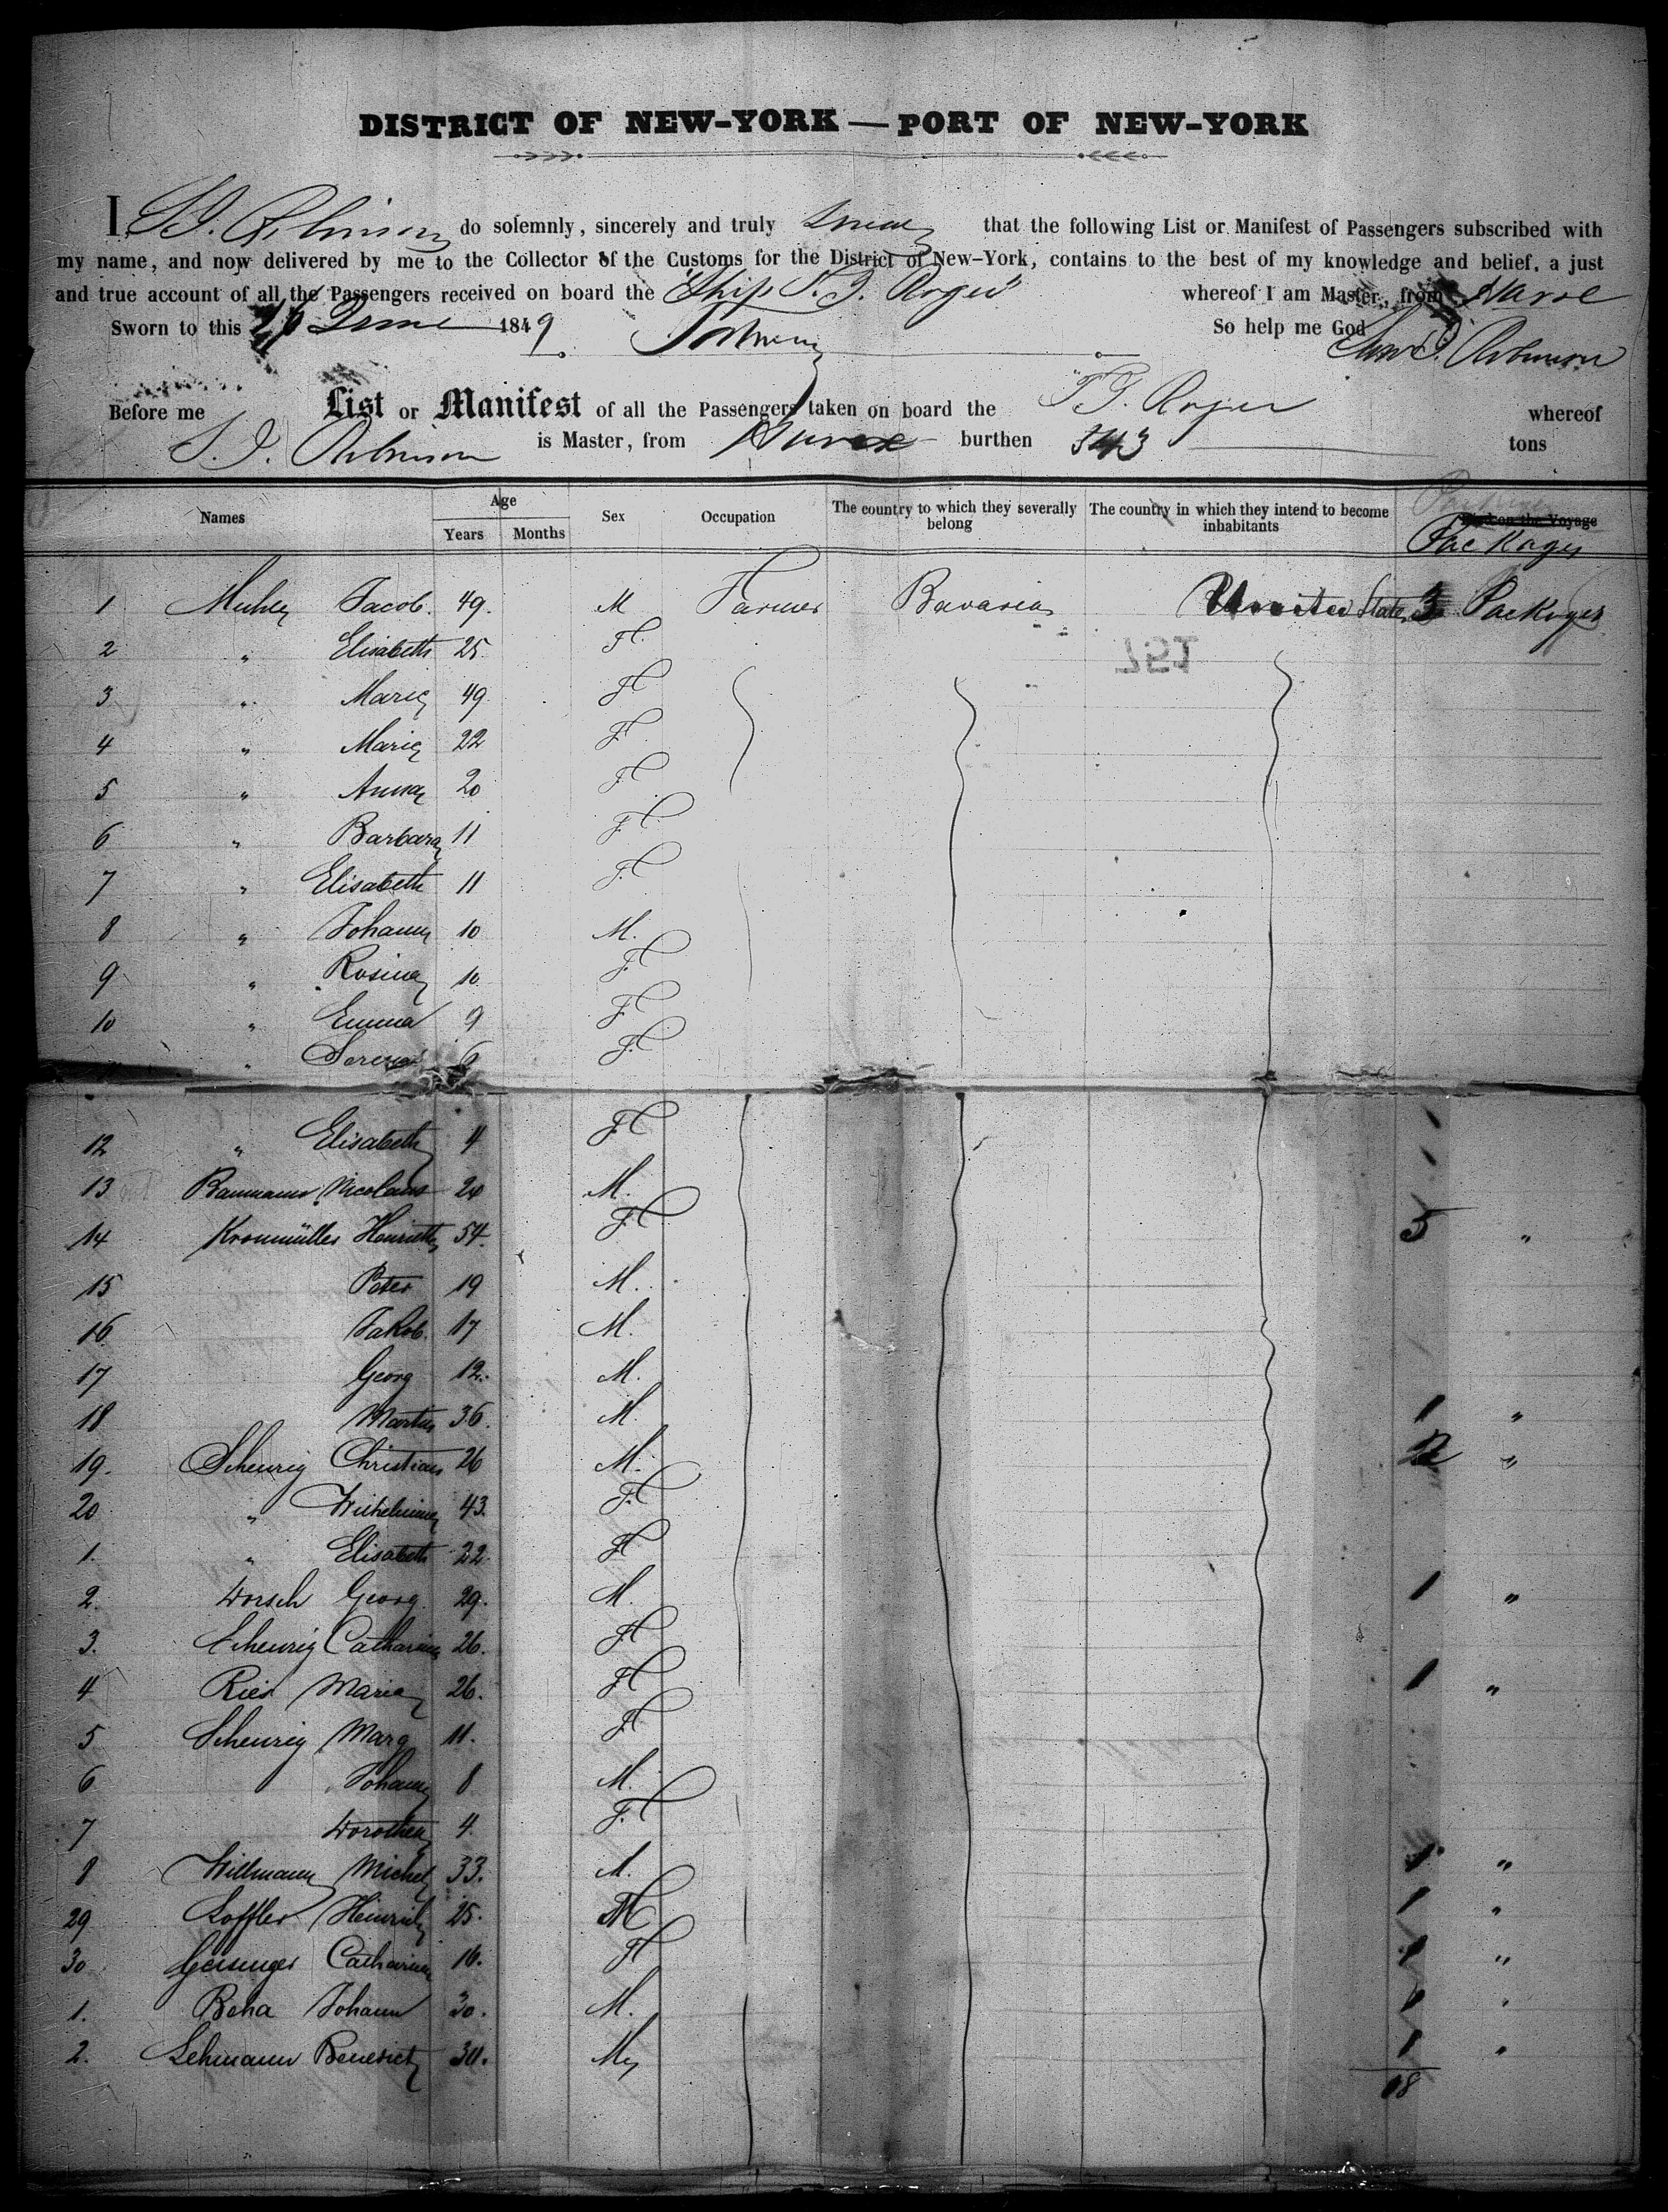 DISTRICT OF NEW-YORK — PORT OF NEW-YORK
I, do solemnly, sincerely and truly swear that the following List or Manifest of Passengers subscribed with
my name, and now delivered by me to the Collector of the Customs for the District of New-York, contains to the best of my knowledge and belief, a just
and true account of all the Passengers received on board the Ship whereof I am Master, from Havre
Sworn to this 26 June 1849 So help me God
Before me List or Manifest of all the Passengers taken on board the whereof
is Master, from Havre burthen 543 tons
Names Age Sex Occupation The country to which they severally belong The country in which they intend to become inhabitants Died on the Voyage
Years Months Packages
1 Jacob. 49. M Farmer Bavaria United States 3 Packages
2 " Elisabeth 25 F
157
3 " Marie 49 F
4 " Marie 22 F
5 " Anna 20 F
6 " Barbara 11 F
7 " Elisabeth 11 F
8 " Johann 10 M.
9 " Rosina 10 F
10 " Emma 9 F
" 6 F
12 " Elisabeth 4 F
13 Baumann Nicolaus 24 M.
14 Kronmüller Henriette 54. F 5 "
15 Peter 19 M.
16 Jakob. 17 M.
17 Georg 12. M.
18 Martin 36. M. 1 "
19. Scheurig Christian 26 M. 2 "
20 " Wilhelmine 43. F
1. " Elisabeth 22. F
2. Dorsch Georg 29. M. 1 "
3. Scheurig Catharina 26. F
4 Ries Maria 26. F 1 "
5 Scheurig Marg 11. F
6 Johann 8 M.
7 Dorothea 4. F
8 Willmann Michel 33. M. 1 "
29 Loffler Heinrich 25. M 1 "
30 Geisinger Catharina 16. F 1 "
1. Beha Johann 30. M. 1 "
2. Lehmann Benedict 30. M 1 "
18